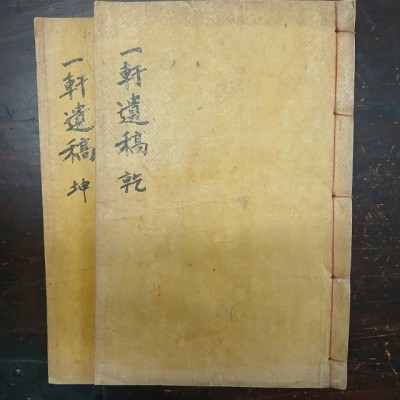 一軒遺稿 乾
一軒遺稿 坤